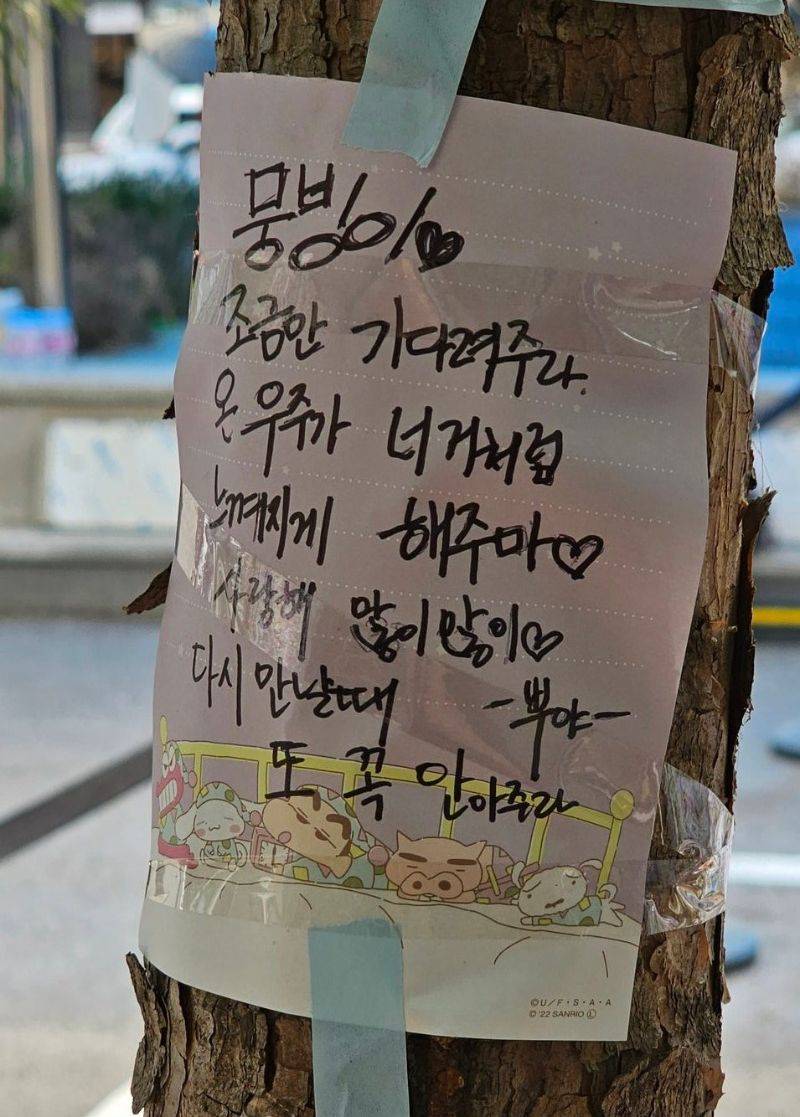 뭉빙이♡
조금만 기다려주라.
온 우주가 너거처럼
느껴지게 해주마♡
사랑해 많이많이♡
다시 만날때 -뿌야-
또 꼭 안아주라
©U/F・S・A・A
©'22 SANRIO Ⓛ